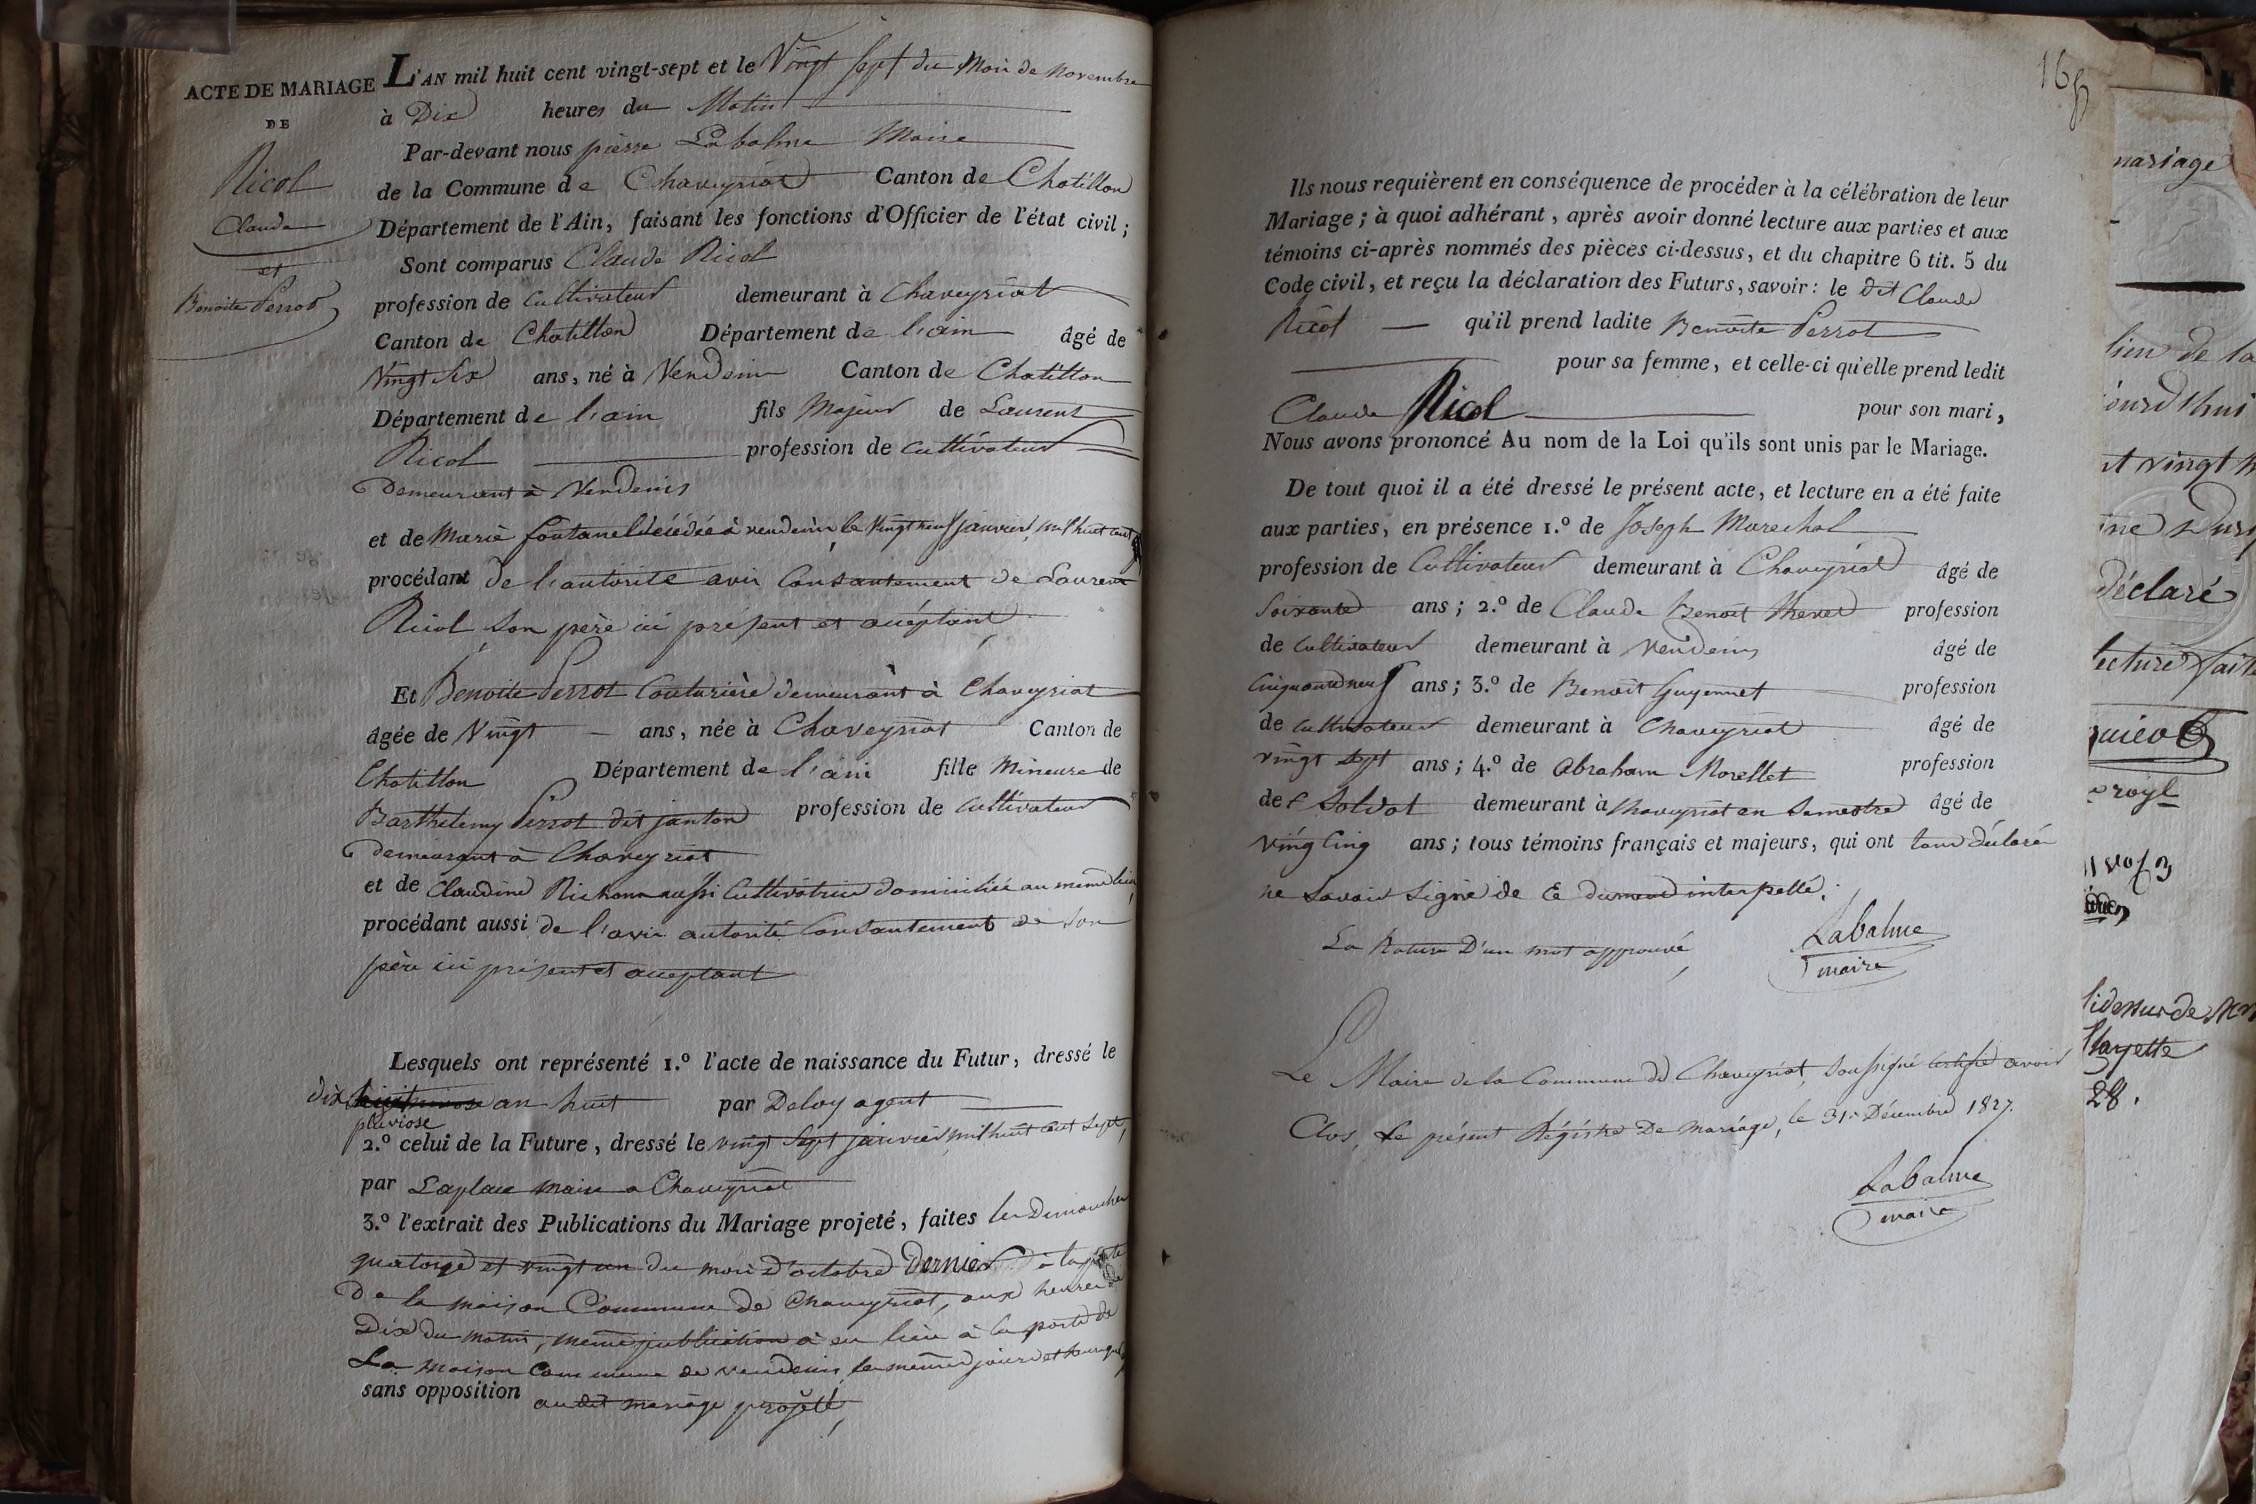 ACTE DE MARIAGE
DE
Ricol
Claude
et
Benoite Perrot
L'AN mil huit cent vingt-sept et le Vingt sept du Mois de Novembre
à Dix heures du Matin
Par-devant nous pierre Labalme Maire
de la Commune de Chaveyriat Canton de Chatillon
Département de l'Ain, faisant les fonctions d'Officier de l'état civil ;
Sont comparus Claude Ricol
profession de Cultivateur demeurant à Chaveyriat
Canton de Chatillon Département de l'ain âgé de
Vingt Six ans, né à Vendeins Canton de Chatillon
Département de l'ain fils Majeur de Laurent
Ricol profession de Cultivateur
Demeurant à Vendeins
et de Marie fontanel décédée à vendeins le Vingt neuf janvier mil huit cent
procédant de l'autorité avis Consantement de Laurent
Ricol son père ici présent et acceptant
Et Benoite Perrot Couturière demeurant à Chaveyriat
âgée de Vingt ans, née à Chaveyriat Canton de
Chatillon Département de l'ain fille Mineure de
Barthelemy Perrot dit janton profession de Cultivateur
demeurant à Chaveyriat
et de Claudine aussi Cultivatrice domiciliée au même lieu
procédant aussi de l'avis autorité Consantement de son
père ici présent et acceptant
Lesquels ont représenté 1.º l'acte de naissance du Futur, dressé le
dix an huit par Deloy agent
pluviose
2.º celui de la Future, dressé le vingt Sept janvier mil huit cent Sept,
par Laplace Maire a Chaveyriat
3.º l'extrait des Publications du Mariage projeté, faites les Dimanches
quatorze et vingt un du mois d'octobre Dernier à la porte
De la maison Commune de Chaveyriat, aux heures de
Dix du matin, même publication a eu lieu à la porte de
La maison Commune de vendeins les mêmes jours et
sans opposition audit mariage projeté,
165
Ils nous requièrent en conséquence de procéder à la célébration de leur
Mariage ; à quoi adhérant, après avoir donné lecture aux parties et aux
témoins ci-après nommés des pièces ci-dessus, et du chapitre 6 tit. 5 du
Code civil, et reçu la déclaration des Futurs, savoir : le dit Claude
Ricol qu'il prend ladite Benoite Perrot
pour sa femme, et celle-ci qu'elle prend ledit
Claude Ricol pour son mari,
Nous avons prononcé Au nom de la Loi qu'ils sont unis par le Mariage.
De tout quoi il a été dressé le présent acte, et lecture en a été faite
aux parties, en présence 1.º de Joseph Marechal
profession de Cultivateur demeurant à Chaveyriat âgé de
Soixante ans ; 2.º de Claude Benoit Thevet profession
de Cultivateur demeurant à Vendeins âgé de
Cinquante neuf ans ; 3.º de Benoit Guyennet profession
de Cultivateur demeurant à Chaveyriat âgé de
vingt sept ans ; 4.º de Abraham Morellet profession
de Soldat demeurant à Chaveyriat en Semestre âgé de
Vingt Cinq ans ; tous témoins français et majeurs, qui ont tous déclaré
ne Savoir Signé de Ce dument interpellé.
La Rature D'un mot approuvé
Labalme
maire
Le Maire de la Commune de Chaveyriat, Soussigné certifié avoir
Clos, Le présent Régistre De mariage, le 31 Décembre 1827.
Labalme
maire
mariage
lieu de la
déclaré
lecture faite
28.